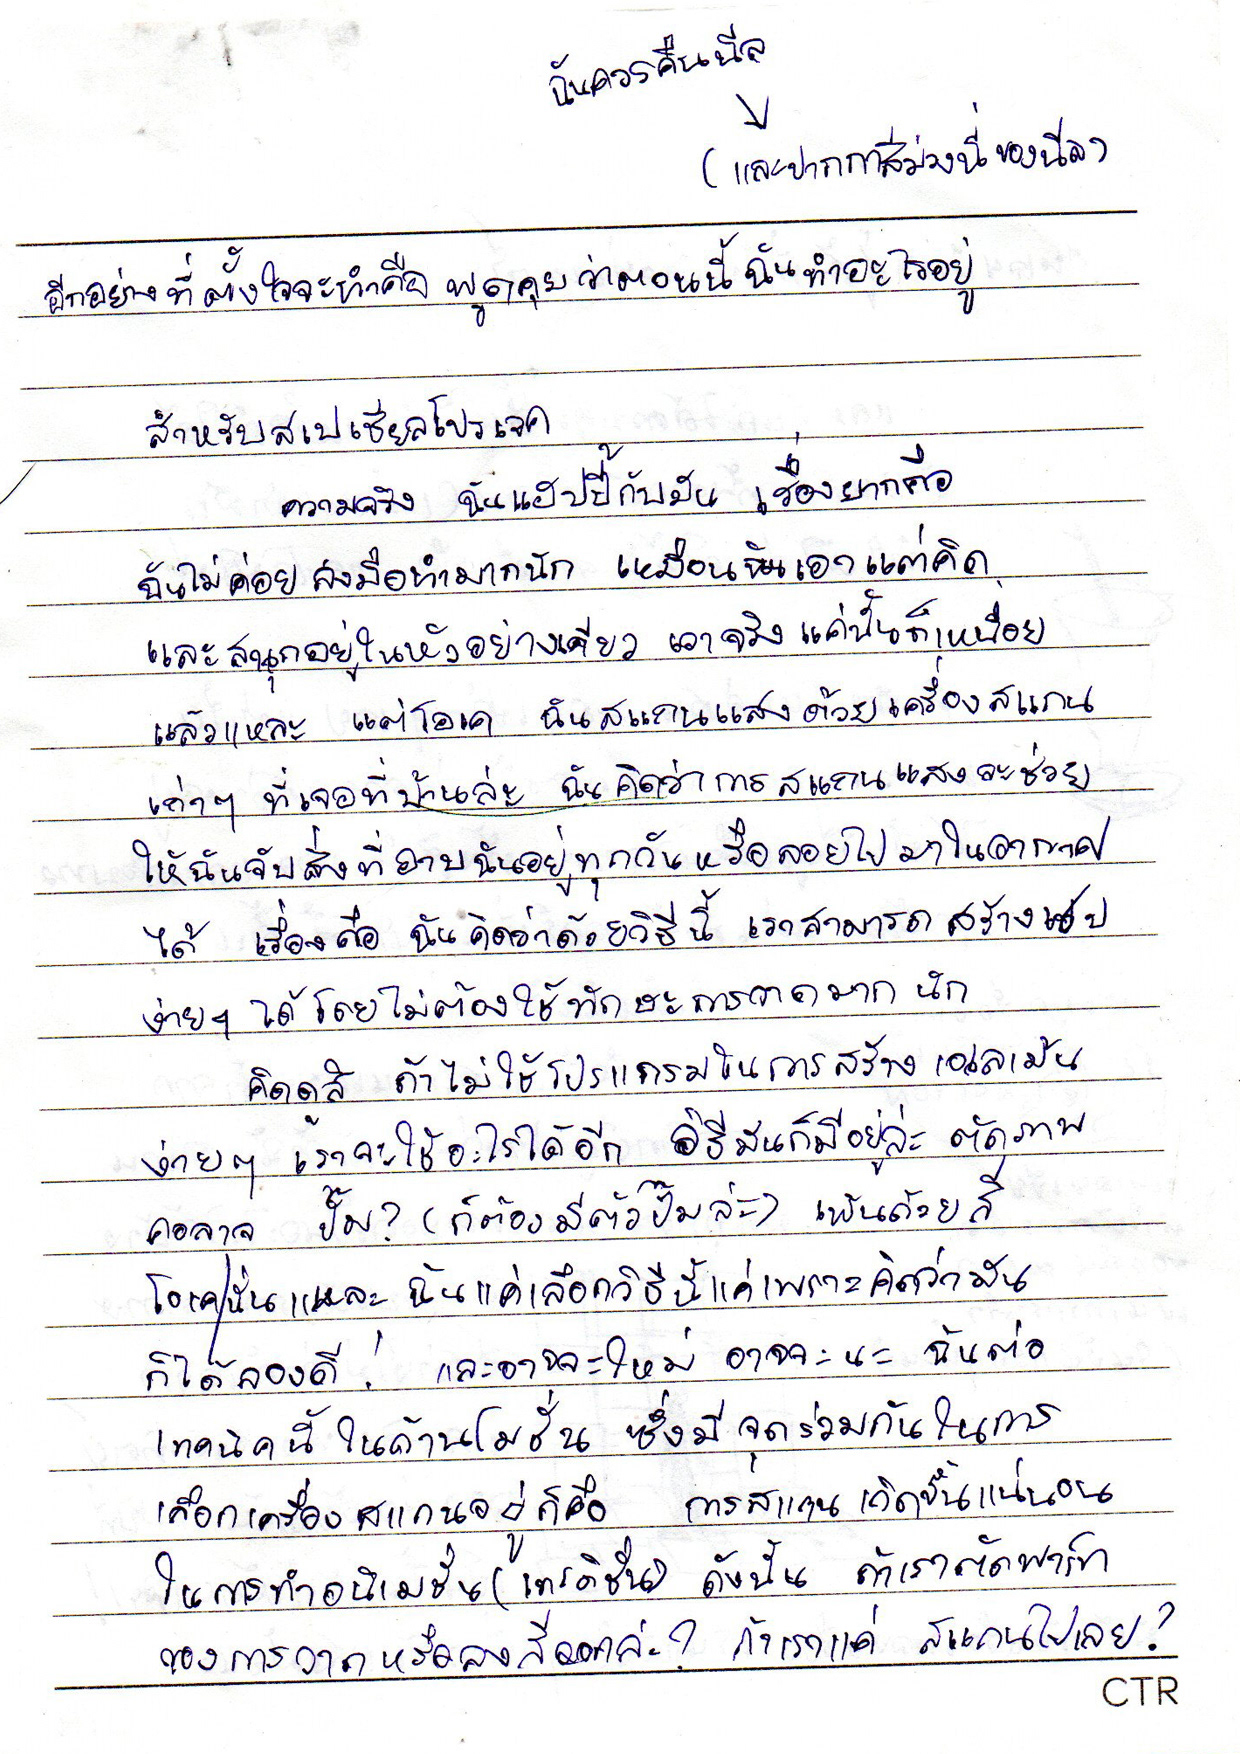 ฉันควรคืนนีล
(และปากกาสีม่วงนี่ของนีล)
อีกอย่างที่ตั้งใจจะทำคือ พูดคุยว่าตอนนี้ฉันทำอะไรอยู่
สำหรับสเปเชียลโปรเจค
ความจริง ฉันแฮปปี้กับมัน เรื่องยากคือ
ฉันไม่ค่อยลงมือทำมากนัก เหมือนฉันเอาแต่คิด
และสนุกอยู่ในหัวอย่างเดียว เอาจริงแค่นั้นก็เหนื่อย
แล้วแหละ แต่โอเค ฉันสแกนแสงด้วยเครื่องสแกน
เก่าๆ ที่เจอที่บ้านล่ะ ฉันคิดว่าการสแกนแสงจะช่วย
ให้ฉันจับสิ่งที่อาบฉันอยู่ทุกวันหรือลอยไปมาในอากาศ
ได้ เรื่องคือ ฉันคิดว่าด้วยวิธีนี้ เราสามารถสร้าง
ง่ายๆ ได้โดยไม่ต้องใช้ทักษะการวาดมากนัก
คิดดูสิ ถ้าไม่ใช้โปรแกรมในการสร้างเอเลเม้น
ง่ายๆ เราจะใช้อะไรได้อีก วิธีมันก็มีอยู่ล่ะ ตัดภาพ
คอลาจ ปั๊ม? (ก็ต้องมีตัวปั๊มล่ะ) เพ้นด้วยสี
โอเคนั่นแหละ ฉันแค่เลือกวิธีนี้แค่เพราะคิดว่ามัน
ก็ได้ลองดี! และอาจจะใหม่ อาจจะนะ ฉันต่อ
เทคนิคนี้ในด้านโมชั่น ซึ่งมีจุดร่วมกันในการ
เลือกเครื่องสแกนอยู่ก็คือ การสแกนเกิดขึ้นแน่นอน
ในการทำอนิเมชั่น(เทรดิชั่น) ดังนั้น ถ้าเราตัดพาร์ท
ของการวาดหรือลงสีออกล่ะ? ถ้าเราแค่ สแกนไปเลย?
CTR